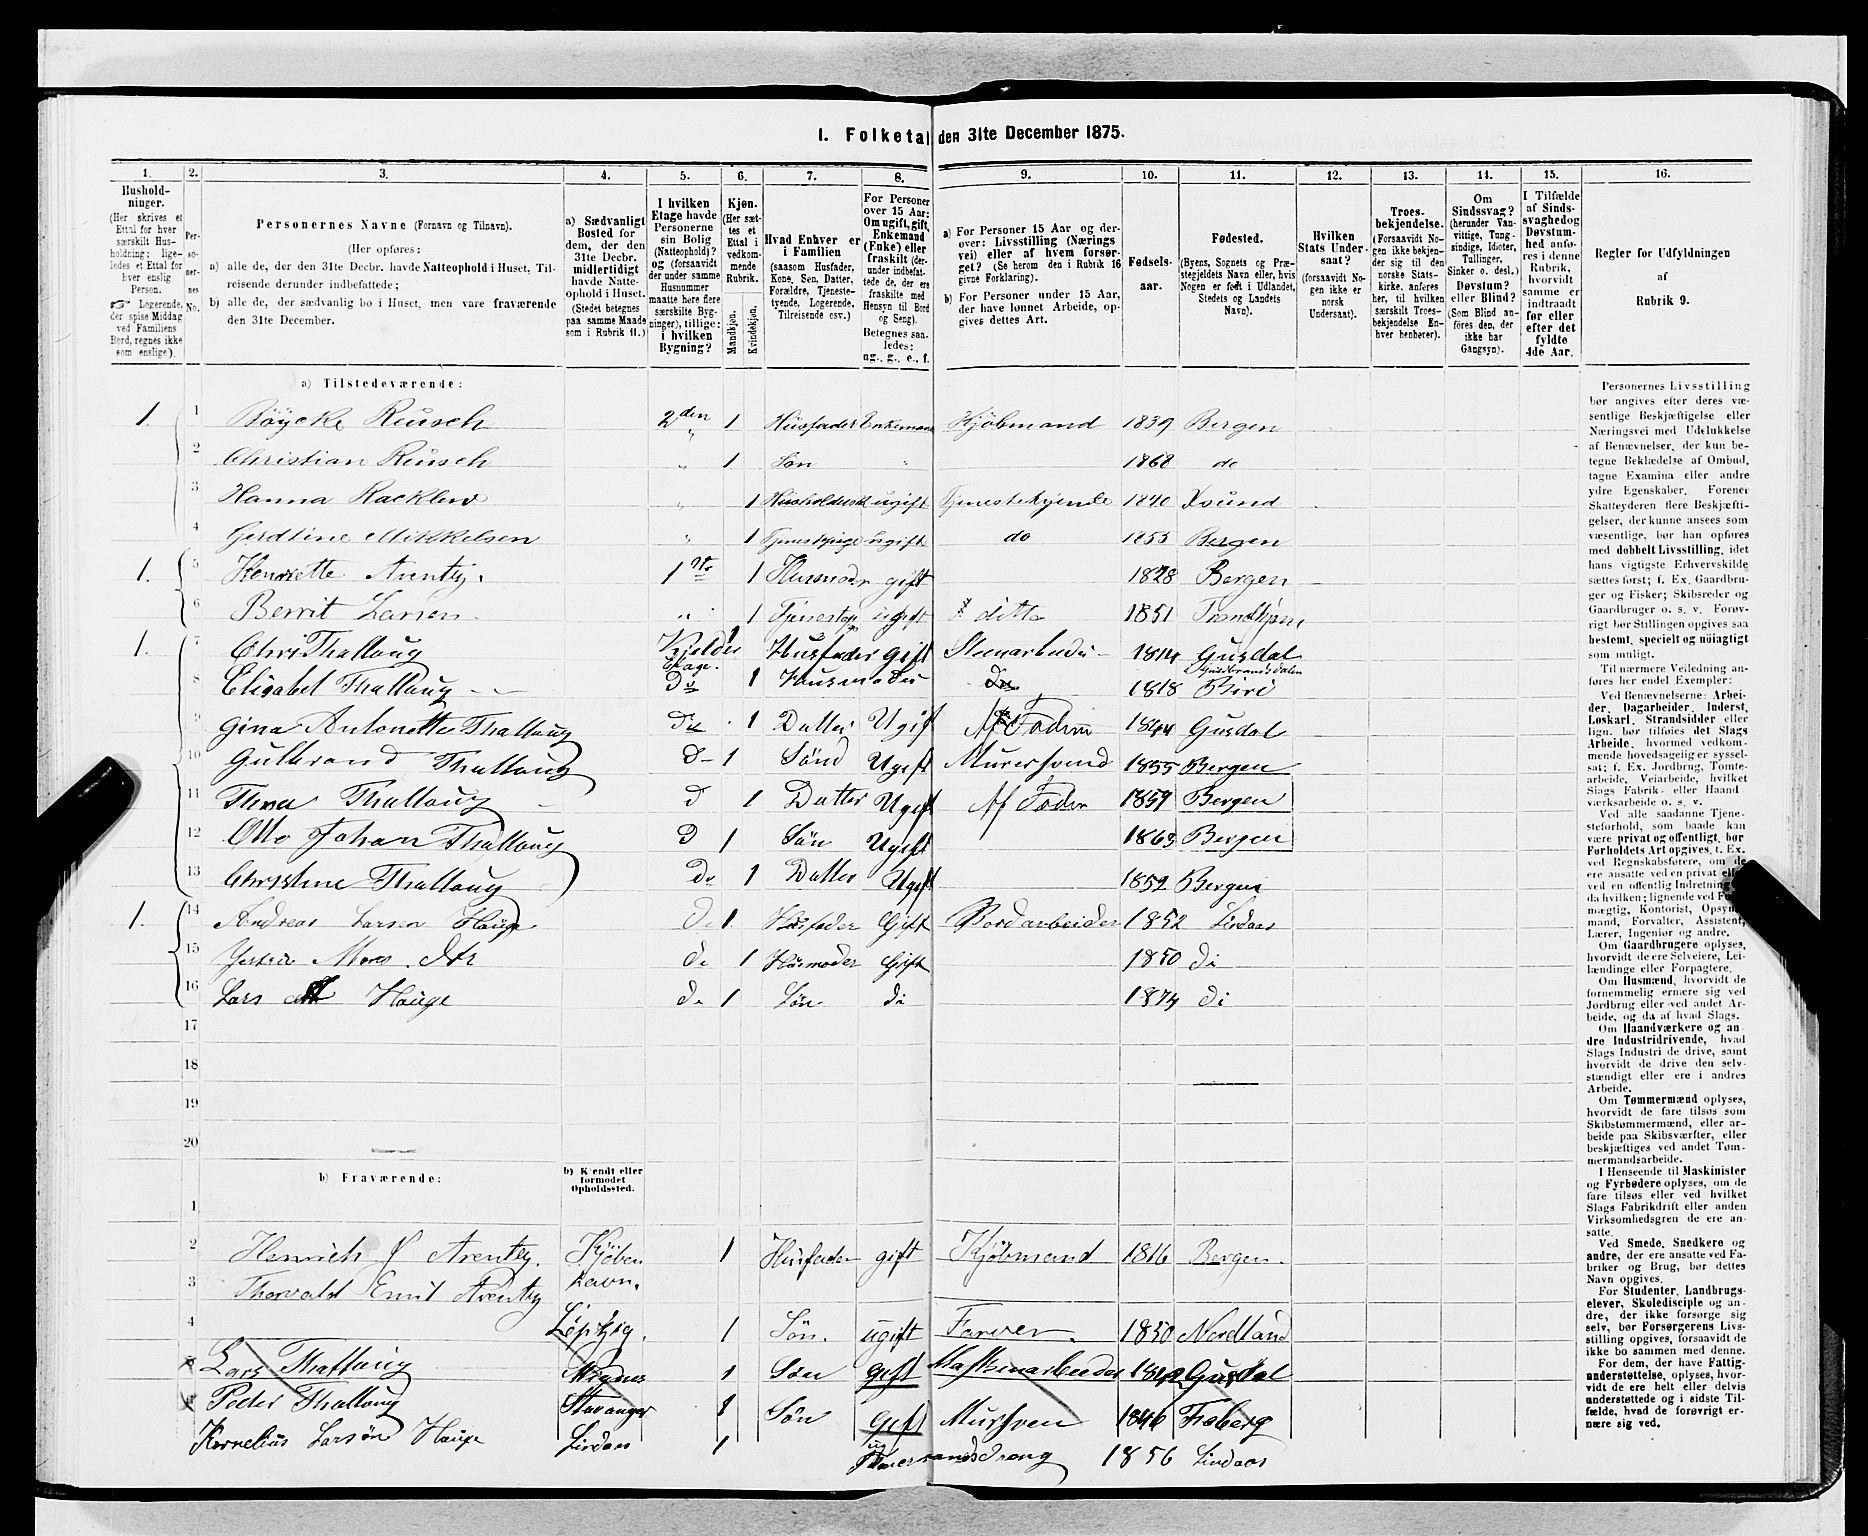 I. Folketal den 31te December 1875.
1. 2. 3. 4. 5. 6. 7. 8. 9. 10. 11. 12. 13. 14. 15. 16.
Husholdninger.
(Her skrives et Ettal for hver særskilt Husholdning; ligeledes et Ettal for hver enslig Person.
☞ Logerende, der spise Middag ved Familiens Bord, regnes ikke som enslige).
Personernes No.
Personernes Navne (Fornavn og Tilnavn).
(Her opføres:
a) alle de, der den 31te Decbr. havde Natteophold i Huset, Tilreisende derunder indbefattede;
b) alle de, der sædvanlig bo i Huset, men vare fraværende den 31te December.
a) Sædvanligt Bosted for dem, der den 31te Decbr. midlertidigt havde Natteophold i Huset. (Stedet betegnes paa samme Maade som i Rubrik 11.)
I hvilken Etage havde Personerne sin Bolig (Natteophold)? og (forsaavidt der under samme Husnummer maatte høre flere særskilte Bygninger), tillige: i hvilken Bygning?
Kjøn.
(Her sættes et Ettal i vedkommende Rubrik.
Mandkjøn.
Kvindekjøn.
Hvad Enhver er i Familien
(saasom Husfader, Kone, Søn, Datter, Forældre, Tjenestetyende, Logerende, Tilreisende osv.)
For Personer over 15 Aar: Om ugift, gift, Enkemand (Enke) eller fraskilt (derunder indbefattede de, der ere fraskilte med Hensyn til Bord og Seng).
Betegnes saaledes: ug., g., e., f.
a) For Personer 15 Aar og derover: Livsstilling (Næringsvei) eller af hvem forsørget? (Se herom den i Rubrik 16 givne Forklaring).
b) For Personer under 15 Aar, der have lønnet Arbeide, opgives dettes Art.
Fødselsaar.
Fødested.
(Byens, Sognets og Præstegjeldets Navn eller, hvis Nogen er født i Udlandet, Stedets og Landets Navn).
Hvilken Stats Undersaat?
(forsaavidt Nogen ikke er norsk Undersaat).
Troesbekjendelse.
(Forsaavidt Nogen ikke bekjender sig til den norske Statskirke, anføres her, til hvilken særskilt Troesbekjendelse Enhver henhører).
Om Sindssvag? (herunder Vanvittige, Tungsindige, Idioter, Tullinger, Sinker o. desl.) Døvstum? eller Blind? (Som Blind anføres den, der ikke har Gangsyn).
I Tilfælde af Sindssvaghed og Døvstumhed anføres i denne Rubrik, hvorvidt samme er indtraadt før eller efter det fyldte 4de Aar.
Regler for Udfyldningen af Rubrik 9.
a) Tilstedeværende:
1. 1 Böÿcke Reusch 2den 1 Husfader Enkemand Kjöbmand 1839 Bergen
2 Christian Reusch " 1 Søn " 1868 do
3 Hanna Racklew " 1 ugift Tjenestetyende 1840 Xsund
4 Gerdtine Mikkelsen " 1 Tjenestpige ugift do 1855 Bergen
1. 5 Henriette Arentz. 1ste 1 Husmoder gift 1828 Bergen
6 Berrit Larsen " 1 ugift ditto 1851
1. 7 Chri Thallaug Kjelder Etage. 1 Husfader gift 1814 Gusdal Gudbrandsdalen
8 Elisabet Thallaug Do 1 Husmoder Do 1818 Biri
9 Gina Antonette Thallaug Do 1 Datter Ugift Af Faderen 1844 Gusdal
10 Gulbrand Thallaug D 1 Sönd Ugift Murersvend 1855 Bergen
11 Thea Thallaug D 1 Datter Ugift Af Fader 1859 Bergen
12 Otto Johan Thallaug D 1 Sön Ugift 1863 Bergen
13 Christine Thallaug Do 1 Datter Ugift 1852 Bergen
1. 14 Andreas Larsen Hauge do 1 Husfader Gift Bordarbeider 1852 Lindaas
15 Mons. dtr do 1 Husmoder Gift 1850 do
16 Lars Hauge do 1 Sön do 1874 do
17
18
19
20
b) Fraværende:
b) Kjendt eller formodet Opholdssted.
1
2 Henrich J Arentz. Kjöbenhavn. 1 Husfader gift Kjöbmand 1816 Bergen.
3 Thorvald Emil Arentz
4 Leipzig. 1 Sön. ugift Farver. 1850 Nordland
Lars Thallaug 1 Søn gift Maskinarbeider 1842 Gusdal
Peder Thallaug Stavanger 1 Sön Gift Mursven 1846 Froberg
Kornelius Larsön Hauge Lindaas 1 ug 1856 Lindaas
Personernes Livsstilling bør angives efter deres væsentlige Beskjæftigelse eller Næringsvei med Udelukkelse af Benævnelser, der kun betegne Beklædelse af Ombud, tagne Examina eller andre ydre Egenskaber. Forener Skatteyderen flere Beskjæftigelser, der kunne ansees som væsentlige, bør han opføres med dobbelt Livsstilling, idet hans vigtigste Erhvervskilde sættes først; f. Ex. Gaardbruger og Fisker; Skibsreder og Gaardbruger o. s. v. Forøvrigt bør Stillingen opgives saa bestemt, specielt og nøiagtigt som muligt.
Til nærmere Veiledning anføres her endel Exempler:
Ved Benævnelserne: Arbeider, Dagarbeider, Inderst, Løskarl, Strandsidder eller lign. bør tilføies det Slags Arbeide, hvormed vedkommende hovedsagelig er sysselsat; f. Ex. Jordbrug, Tomtearbeide, Veiarbeide, hvilket Slags Fabrik- eller Haandværksarbeide o. s. v.
Ved alle saadanne Tjenesteforhold, som baade kan være privat og offentligt, bør Forholdets Art opgives, f. Ex. ved Regnskabsførere, om de ere ansatte ved en privat eller ved en offentlig Indretning da hvilken; lignende ved mægtig, Kontorist, Opsynsmand, Forvalter, Assistent, Lærer, Ingeniør og andre.
Om Gaardbrugere oplyses, hvorvidt de ere Selveiere, Leilændinge eller Forpagtere.
Om Husmænd, hvorvidt de fornemmelig ernære sig ved Jordbrug eller ved andet Arbeide, og da af hvad Slags.
Om Haandværkere og andre Industridrivende, hvad Slags Industri de drive, samt hvorvidt de drive den selvstændigt eller ere i andres Arbeide.
Om Tømmermænd oplyses, hvorvidt de fare tilsøs som Skibstømmermænd, eller arbeide paa Skibsværfter, eller beskjæftiges ved andet Tømmermandsarbeide.
I Henseende til Maskinister og Fyrbødere oplyses, om de fare tilsøs eller ved hvilket Slags Fabrikdrift eller anden Virksomhedsgren de ere ansatte.
Ved Smede, Snedkere og andre, der ere ansatte ved Fabriker og Brug, bør dettes Navn opgives.
For Studenter, Landbrugselever, Skoledisciple og andre, der ikke forsørge sig selv, bør Forsørgerens Livsstilling opgives, forsaavidt de ikke bo sammen med denne.
For dem, der have Fattigunderstøttelse, oplyses, hvorvidt de ere helt eller delvis understøttede og i sidste Tilfælde, hvad de forøvrigt ernære sig ved.